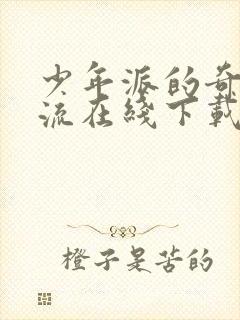 少年派的奇
流在线下载
橙子是苦的